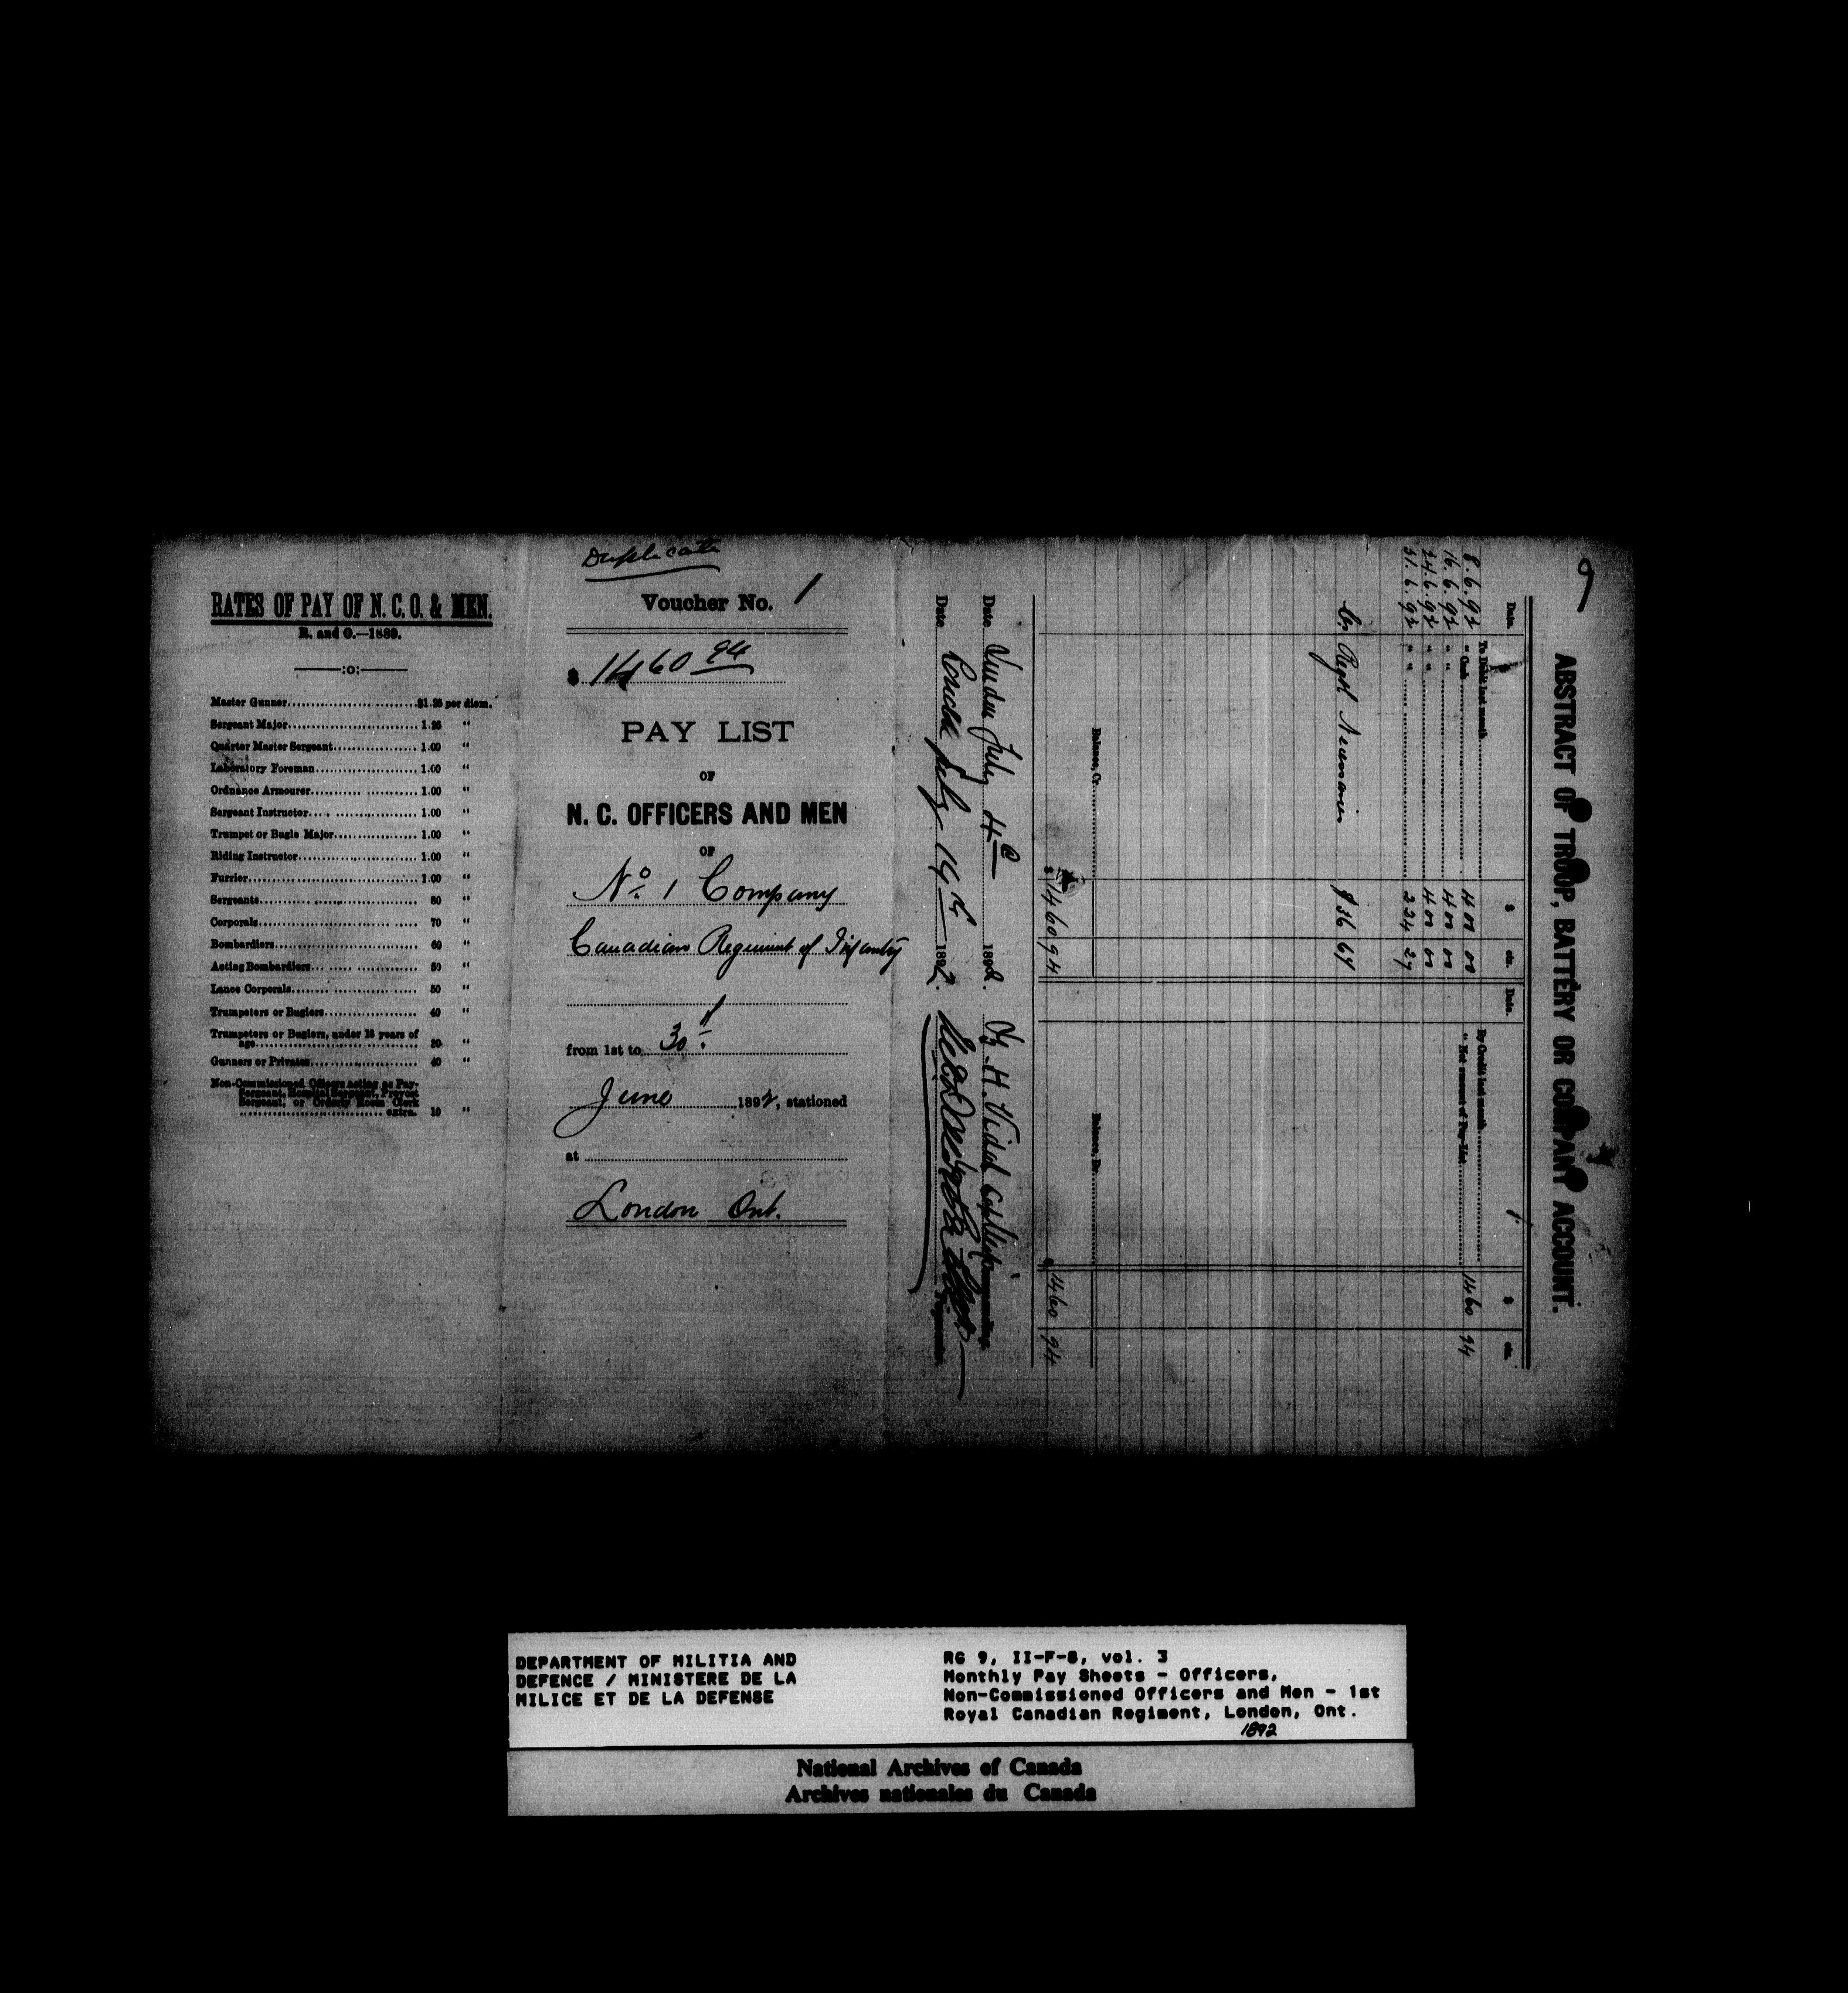 RATES OF PAY OF N. C. O. & MEN.
R. and O.—1889.
:o:
Master Gunner........................$1.25 per diem.
Sergeant Major........................ 1.25 "
Quarter Master Sergeant................ 1.00 "
Laboratory Foreman.................... 1.00 "
Ordnance Armourer.................... 1.00 "
Sergeant Instructor.................... 1.00 "
Trumpet or Bugle Major................ 1.00 "
Riding Instructor...................... 1.00 "
Furrier................................ 1.00 "
Sergeants.............................. 80 "
Corporals.............................. 70 "
Bombardiers............................ 60 "
Acting Bombardiers.................... 50 "
Lance Corporals........................ 50 "
Trumpeters or Buglers.................. 40 "
Trumpeters or Buglers, under 18 years of
age.............................. 20 "
Gunners or Privates.................... 40 "
Non-Commissioned Officers acting as Pay-
Sergeant, Hospital Sergeant, Provost
Sergeant, or Orderly Room Clerk
.............................. extra. 10 "
Duplicate
Voucher No. 1
$ 1460 94
PAY LIST
OF
N. C. OFFICERS AND MEN
OF
No. 1 Company
Canadian Regiment of Infantry
from 1st to 30
June 1892, stationed
at
London Ont.
9
ABSTRACT OF TROOP, BATTERY OR COMPANY ACCOUNT.
Date. $ cts. Date. $ cts.
To Debit last month By Credit last month
8.6.92 " Cash 400 00 " Net amount of Pay-List 1460 94
16.6.92 " " 400 00
24.6.92 " " 400 00
31.6.92 " " 224 27
By Regtl $36 67
Balance, Cr. Balance, Dr.
$ 1460 94 $ 1460 94
Date London July 4 1892. H. Vidal Capt
Date London July 14th 1892.
DEPARTMENT OF MILITIA AND
DEFENCE / MINISTERE DE LA
MILICE ET DE LA DEFENSE
RG 9, II-F-8, vol. 3
Monthly Pay Sheets - Officers,
Non-Commissioned Officers and Men - 1st
Royal Canadian Regiment, London, Ont.
1892
National Archives of Canada
Archives nationales du Canada